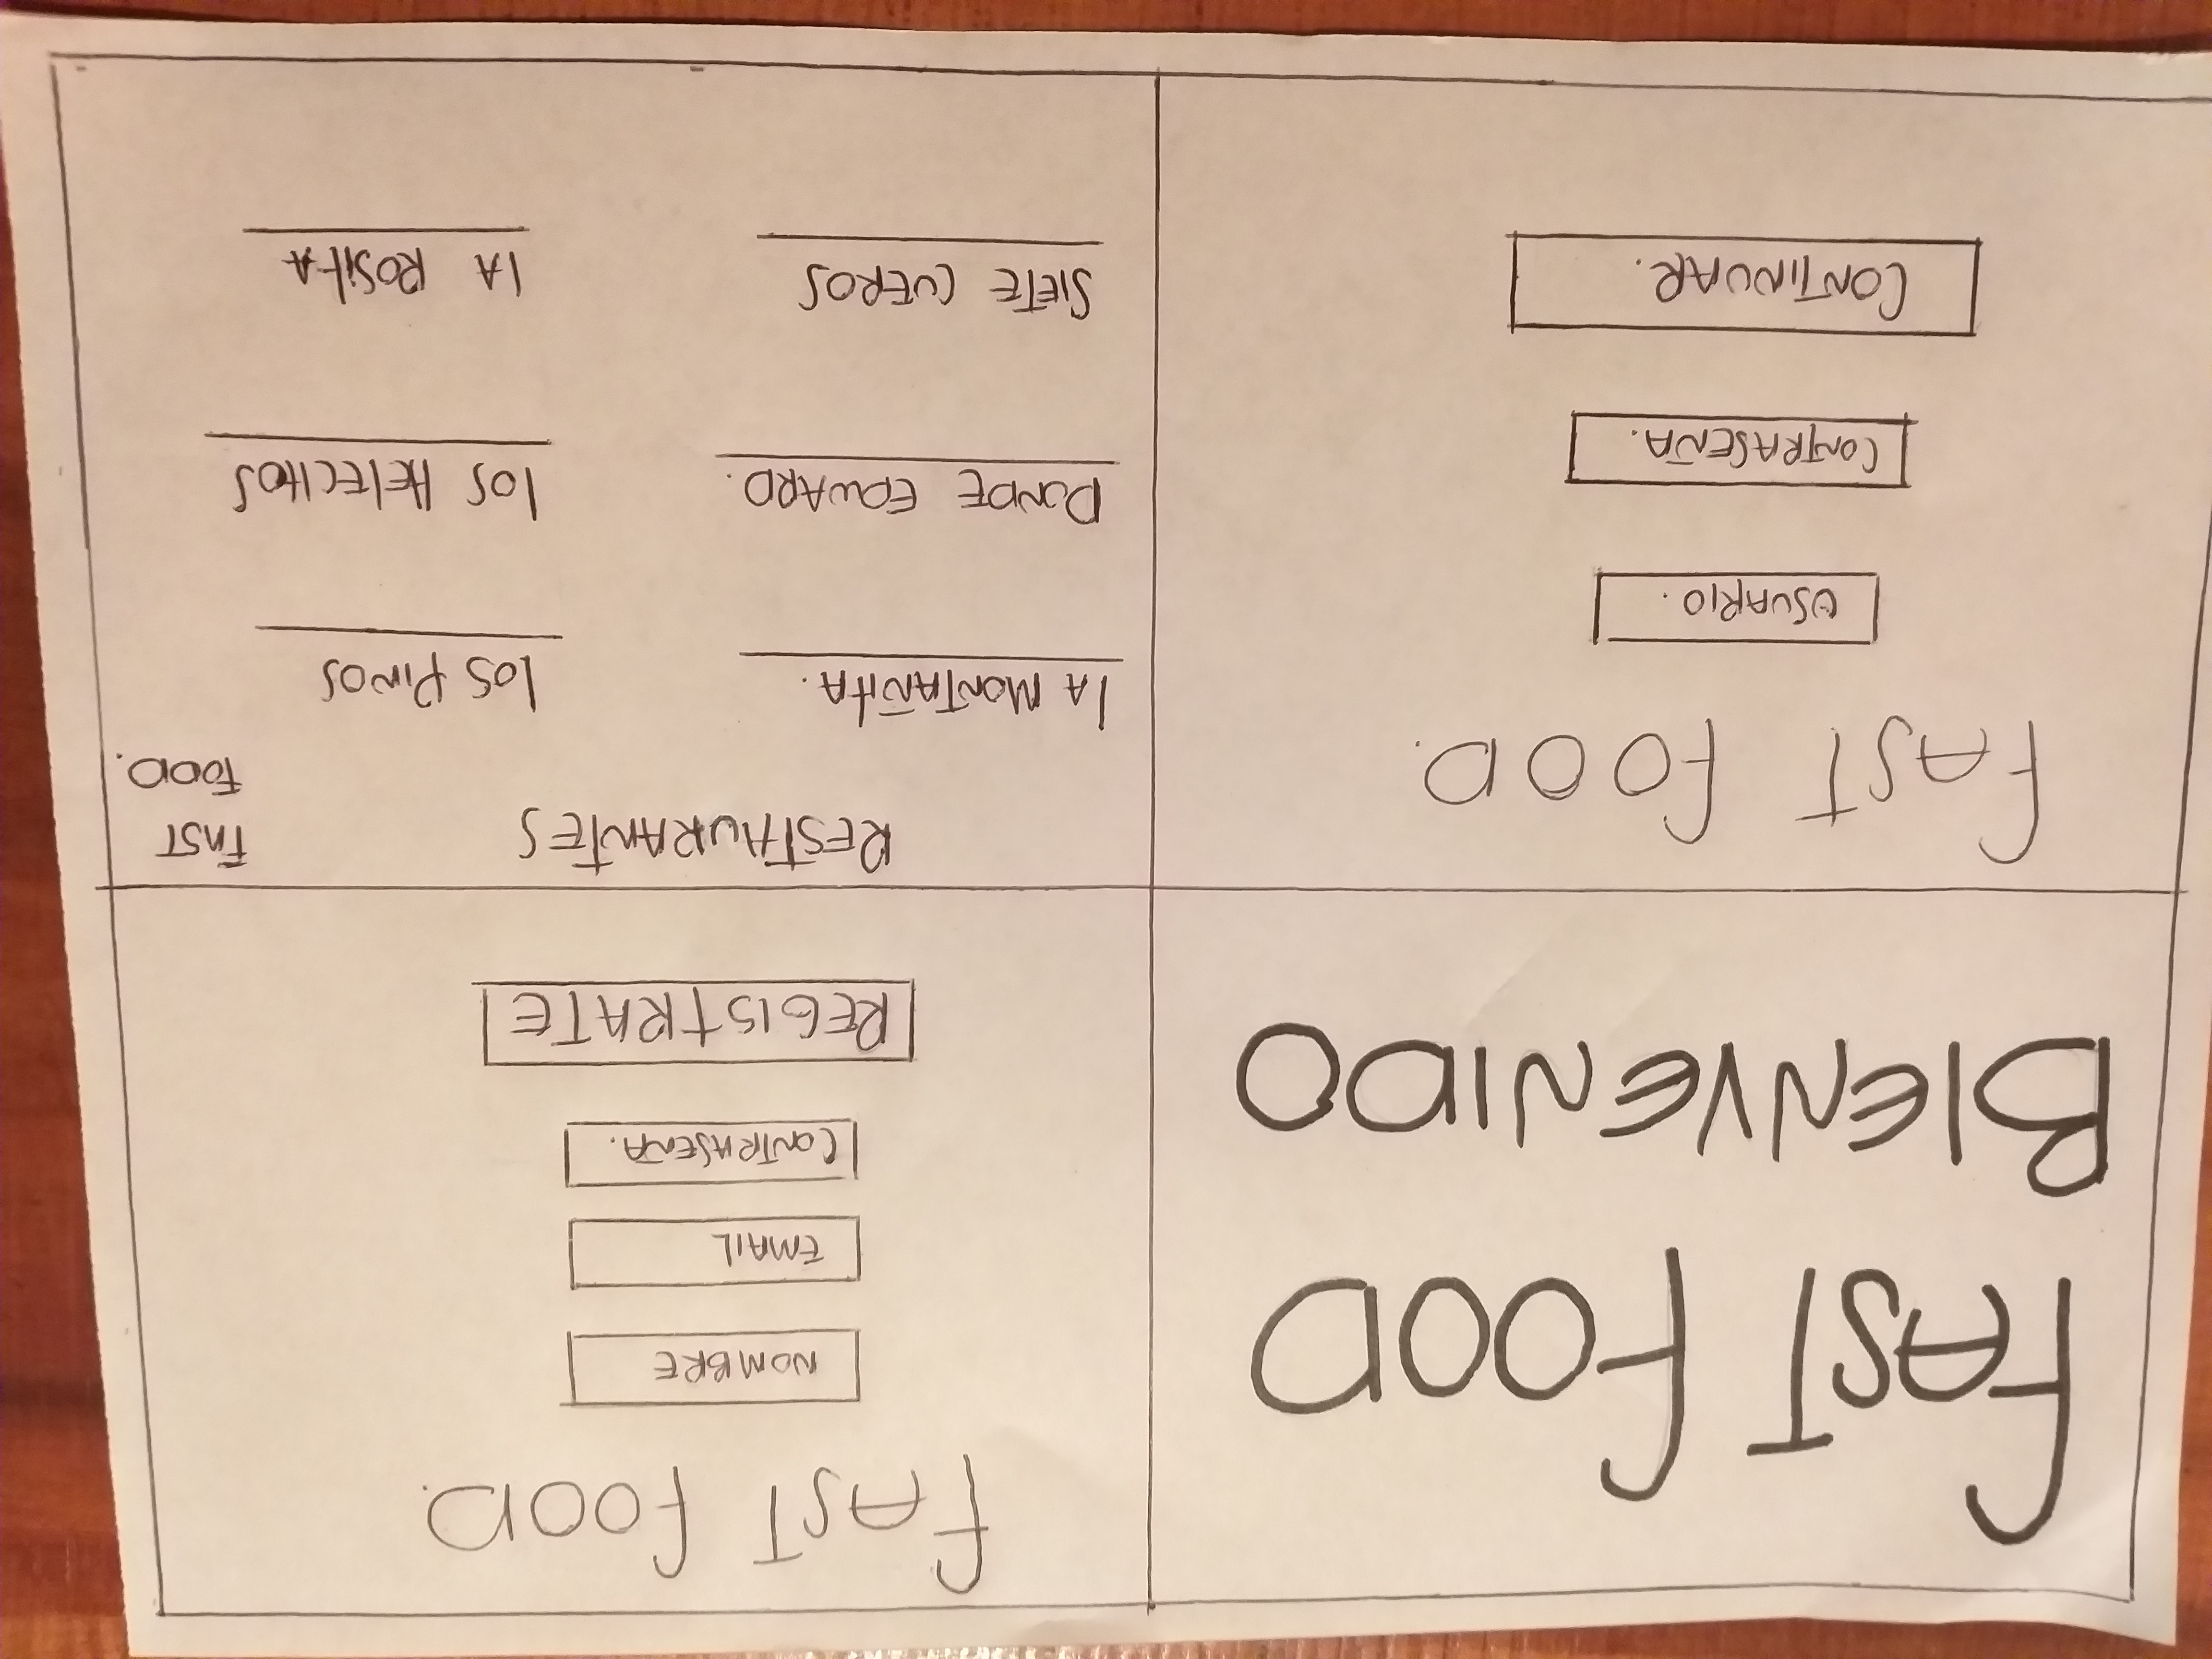 FAST FOOD
BIENVENIDO
FAST FOOD.
NOMBRE
EMAIL
CONTRASEÑA.
REGISTRATE
FAST FOOD.
USUARIO.
CONTRASEÑA.
CONTINUAR.
RESTAURANTES
FAST
FOOD.
lA MONTAÑitA.
los PINOS
DONDE EDWARD.
los HElECHOS
SIETE CUEROS
lA ROSitA